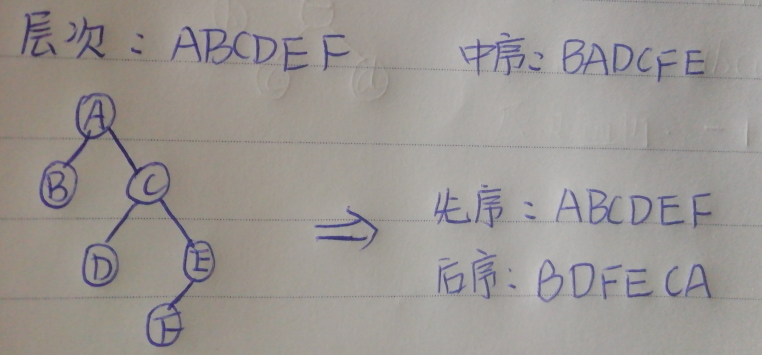 层次：ABCDEF
中序：BADCFE
A
B
C
D
E
F
先序：ABCDEF
后序：BDFECA